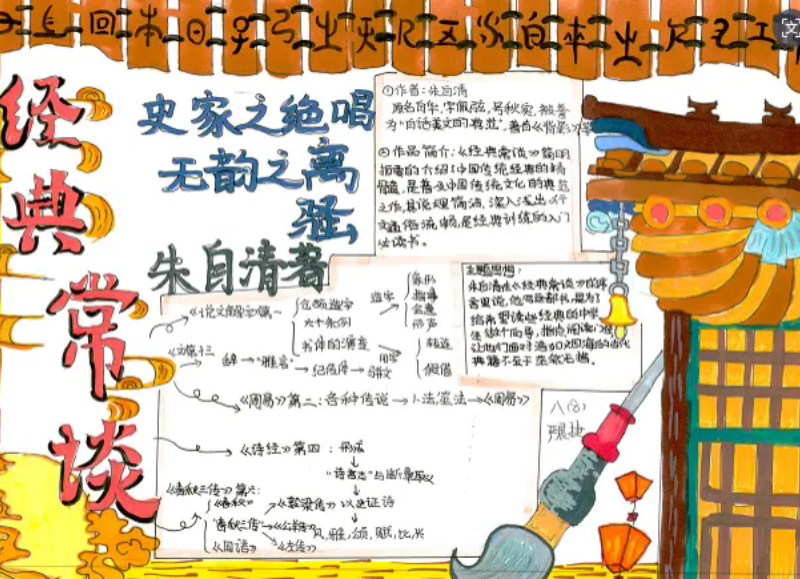 经典常谈
史家之绝唱
无韵之离
骚
朱自清著
①作者:朱自清
原名自华,字佩弦,号秋实,被誉
为“白话美文的典范”,著有《背影》等
②作品简介:《经典常谈》简明
扼要的介绍了中国传统经典的精
髓,是普及中国传统文化的典范
之作,其说理简洁,深入浅出,行
文通俗流畅,是经典训练的入门
必读书。
主题思想:
朱自清在《经典常谈》的序
言里说,他写这部书,是为了
给希望读些经典的中学
生做个向导,指点阅读门径
让他们面对浩如烟海的古代
典籍不至于茫然无措。
《说文解字》第一
造字
象形
指事
会意
形声
书体的演变
转注
假借
《文第十三
辞→“雅言”
《周易》第二:各种传说→卜法筮法→《周易》
《诗经》第四:
“诗言志”与断章取义
以史证诗
风,雅,颂,赋,比,兴
《春秋三传》第六:
《春秋》
“春秋三传”
《国语》
《穀梁传》
《公羊传》
《左传》
八(8)